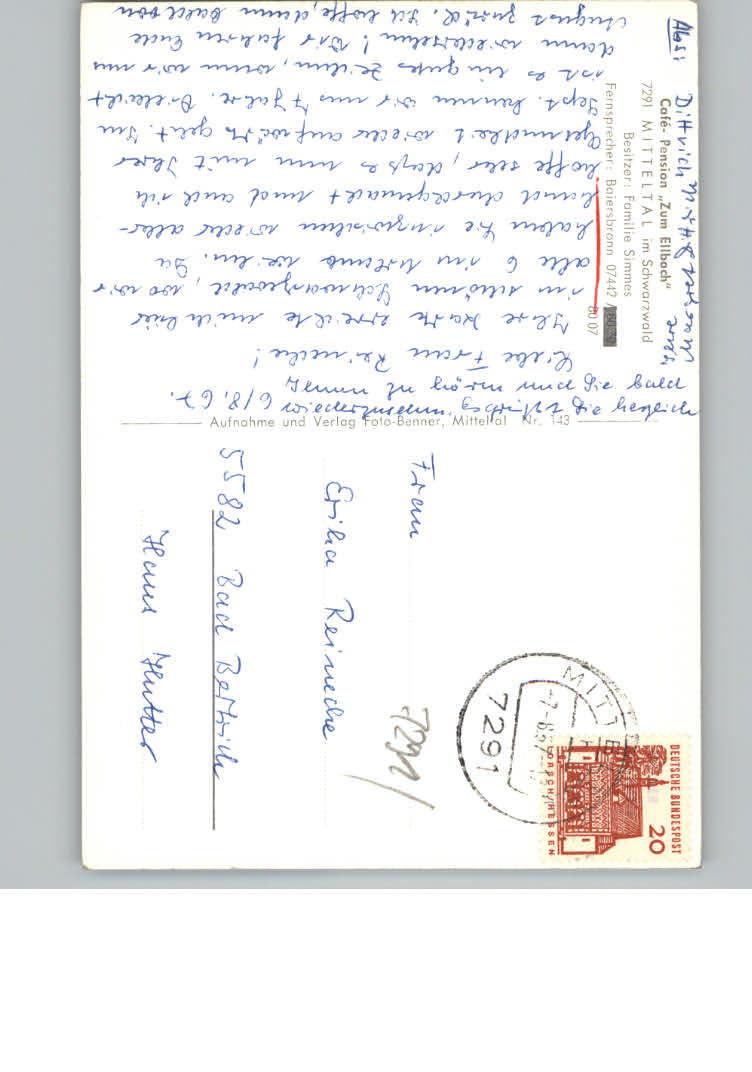 Café- Pension „Zum Ellbach“
7291 MITTELTAL im Schwarzwald
Besitzer: Familie Simmes
Fernsprecher: Baiersbronn 07442 /
80 07
Abs: Dittrich
6/8. 67.
Liebe Frau Reinecke!
Ihre Karte erreichte mich hier
im schönen Schwarzwald, wo wir
alle 6 im Urlaub weilen. Da
haben Sie inzwischen wieder aller-
hand durchgemacht und auch ich
hoffe sehr, dass es nun mit Ihrer
Gesundheit wieder aufwärts geht. Im
Sept. kennen wir uns 7 Jahre. Vielleicht
ist es ein gutes Zeichen, wenn wir uns
dann wiedersehen! Wir fahren Ende
August zurück. Ich hoffe, dann bald von
Ihnen zu hören und Sie bald
wiederzusehen, Sie herzlich
Aufnahme und Verlag Foto-Benner, Mitteltal Nr. 143
Frau
Erika Reinecke
5582 Bad Bertrich
Haus Hutter
7291
MITTELTAL
7291
DEUTSCHE BUNDESPOST
20
LORSCH/HESSEN